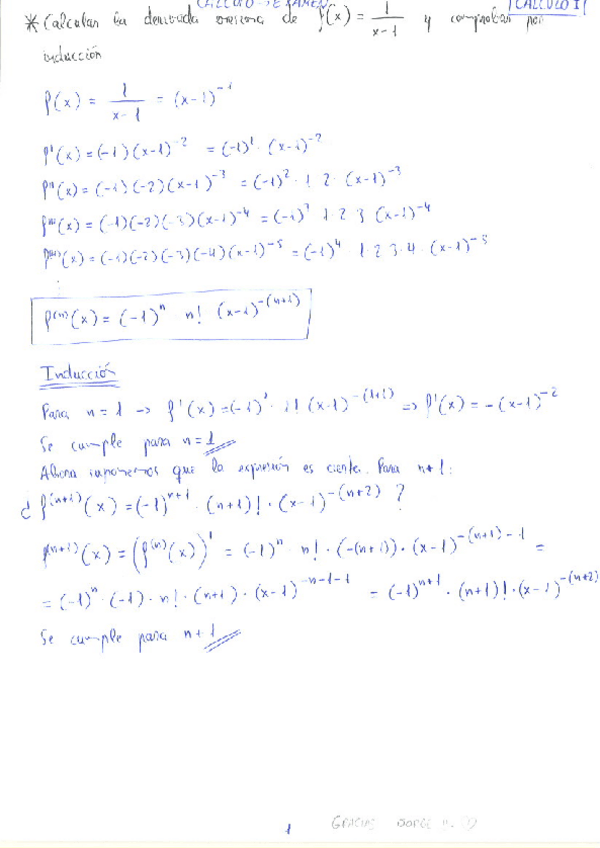 CALCULO I
* Calcular la derivada enésima de f(x) = 1/(x-1) y comprobar por
inducción
f(x) = 1/(x-1) = (x-1)^-1
f'(x) = (-1)(x-1)^-2 = (-1)^1 · (x-1)^-2
f''(x) = (-1)(-2)(x-1)^-3 = (-1)^2 · 1 · 2 · (x-1)^-3
f'''(x) = (-1)(-2)(-3)(x-1)^-4 = (-1)^3 1·2·3 (x-1)^-4
(x) = (-1)(-2)(-3)(-4)(x-1)^-5 = (-1)^4 1·2·3·4 · (x-1)^-5
⋮
f^(n)(x) = (-1)^n n! (x-1)^-(n+1)
Inducción
Para n=1 → f'(x) = (-1)^1 · 1! (x-1)^-(1+1) ⇒ f'(x) = -(x-1)^-2
Se cumple para n=1
Ahora suponemos que la expresión es cierta. Para n+1:
¿ f^(n+1)(x) = (-1)^n+1 · (n+1)! · (x-1)^-(n+2) ?
f^(n+1)(x) = (f^(n)(x))' = (-1)^n · n! · (-(n+1)) · (x-1)^-(n+1)-1 =
= (-1)^n · (-1) · n! · (n+1) · (x-1)^-n-1-1 = (-1)^n+1 · (n+1)! · (x-1)^-(n+2)
Se cumple para n+1
1